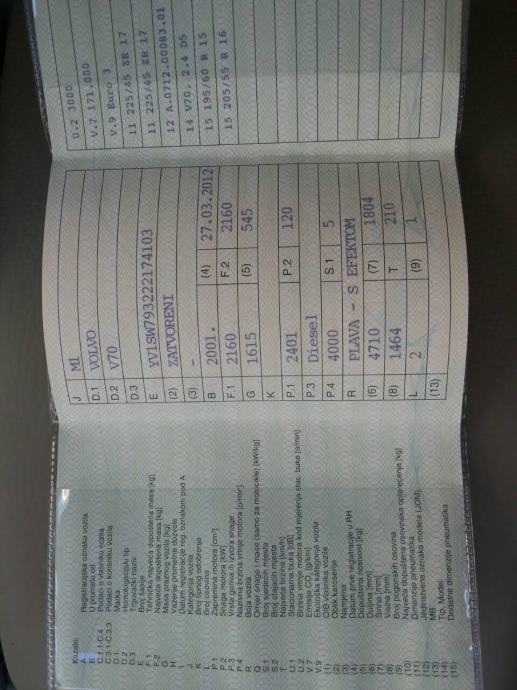 U.2 3000
V.7 171.000
V.9 Euro 3
11 225/45 ZR 17
11 225/45 ZR 17
12 A.0712.00083.01
14 V70, 2.4 D5
15 195/60 R 15
15 205/55 R 16
J M1
D.1 VOLVO
D.2 V70
D.3
E YV1SW793222174103
(2) ZATVORENI
(3) -
B 2001. (4) 27.03.2012
F.1 2160 F.2 2160
G 1615 (5) 545
K
P.1 2401 P.2 120
P.3 Diesel
P.4 4000 S.1 5
R PLAVA - S EFEKTOM
(6) 4710 (7) 1804
(8) 1464 T 210
L 2 (9) 1
(13)
Kazalo:
A Registracijska oznaka vozila
B U prometu od
C.1.1-C.4.1 Podaci o vlasniku vozila
C.3.1-C.3.3 Podaci o korisniku vozila
D.1 Marka
D.2 Homologacijski tip
D.3 Trgovački naziv
E Broj šasije
F.1 Tehnička najveća dopuštena masa [kg]
F.2 Najveća dopuštena masa [kg]
G Masa praznog vozila [kg]
H Važenje prometne dozvole
I Datum izdavanja reg. oznakom pod A
J Kategorija vozila
K Broj tipnog odobrenja
L Broj osovina
P.1 Zapremina motora [cm³]
P.2 Snaga motora [kW]
P.3 Vrsta goriva ili izvora snage
P.4 Nazivna brzina vrtnje motora [o/min]
R Boja vozila
Q Omjer snage i mase (samo za motocikle) [kW/kg]
S.1 Broj sjedećih mjesta
S.2 Broj stajaćih mjesta
T Najveća brzina [km/h]
U.1 Stacionarna buka [dB]
U.2 Brzina vrtnje motora kod mjerenja stac. buke [o/min]
V.7 Emisija CO₂ [g/km]
V.9 Ekološka kategorija vozila
(1) OIB vlasnika vozila
(2) Oblik karoserije
(3) Namjena
(4) Datum prve registracije u RH
(5) Dopuštena nosivost [kg]
(6) Duljina [mm]
(7) Širina [mm]
(8) Visina [mm]
(9) Broj pogonskih osovina
(10) Najveća dopuštena osovinska opterećenja [kg]
(11) Dimenzije pneumatika
(12) Jedinstvena oznaka modela (JOM)
(13) MB
(14) Tip, Model
(15) Dodatne dimenzije pneumatika